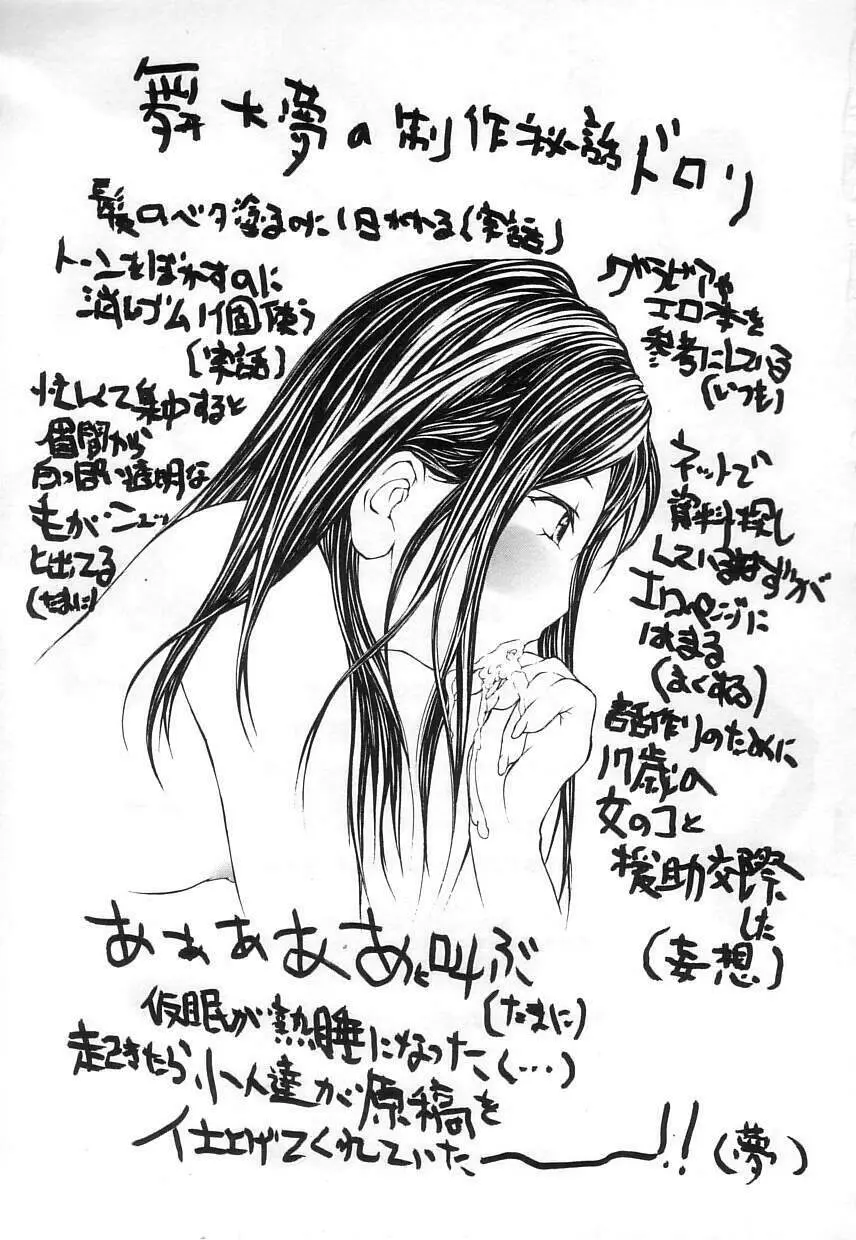 舞大夢の制作秘話ドロリ
髪のベタ塗るのに1日かかる(実話)
トーンをぼかすのに
消しゴム1個使う
(実話)
忙しくて集中すると
眉間から
白っぽい透明な
毛がニュッ
と出てる
(たまに)
グラビアや
エロ本を
参考にしている
(いつも)
ネットで
資料探し
しているはずが
エロページに
はまる
(よくする)
話作りのために
17歳の
女のコと
援助交際
した
(妄想)
あぁぁぁあと叫ぶ
(たまに)
仮眠が熟睡になった(…)
起きたら小人達が原稿を
仕上げてくれていたー!!(夢)